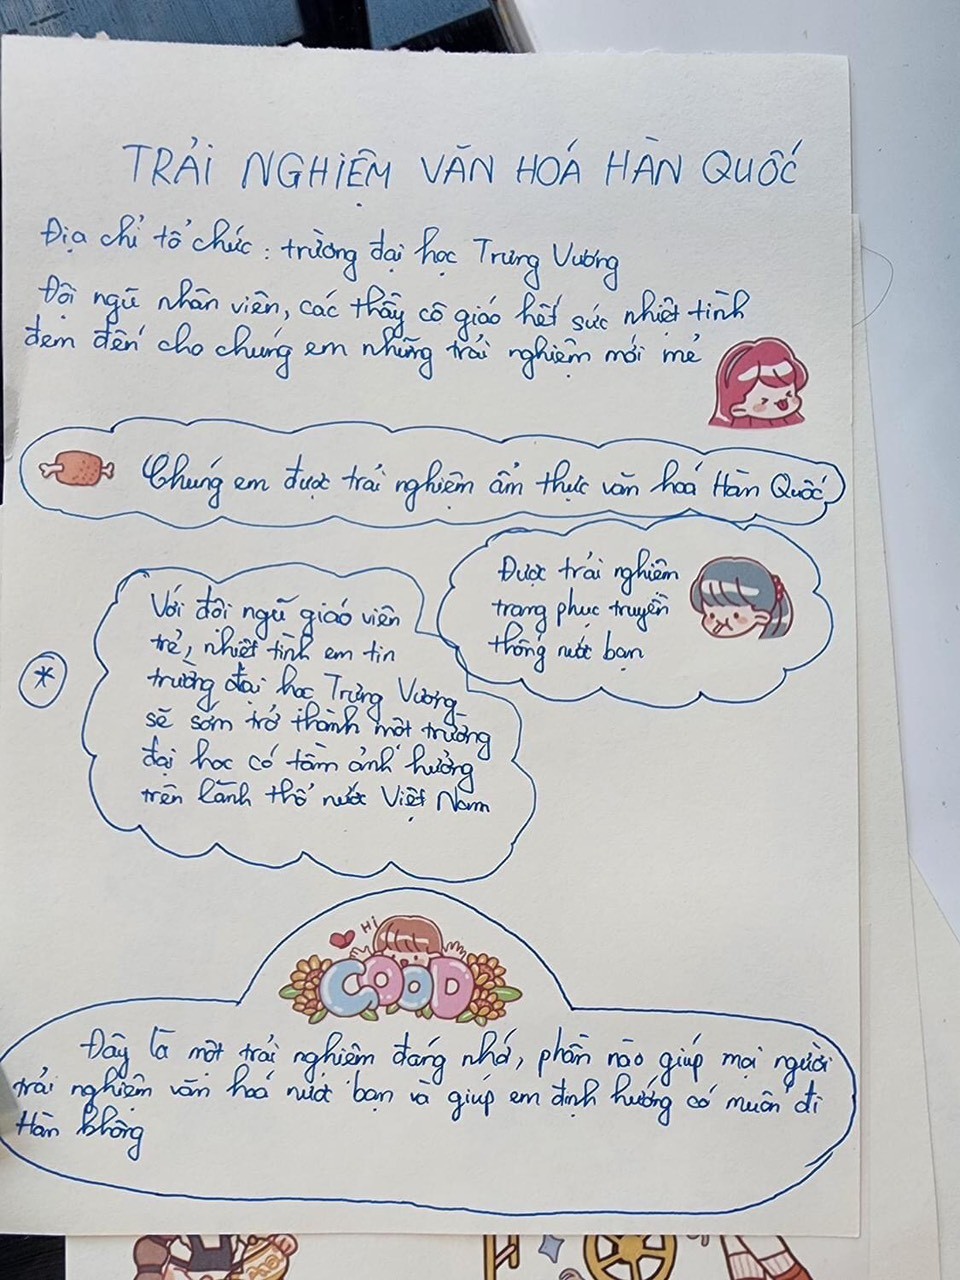 TRẢI NGHIỆM VĂN HOÁ HÀN QUỐC
Địa chỉ tổ chức : trường đại học Trưng Vương
Đội ngũ nhân viên, các thầy cô giáo hết sức nhiệt tình
đem đến cho chúng em những trải nghiệm mới mẻ
Chúng em được trải nghiệm ẩm thực văn hoá Hàn Quốc
Được trải nghiệm
trang phục truyền
thống nước bạn
Với đội ngũ giáo viên
trẻ, nhiệt tình em tin
trường đại học Trưng Vương
sẽ sớm trở thành một trường
đại học có tầm ảnh hưởng
trên lãnh thổ nước Việt Nam
*
Hi
GOOD
Đây là một trải nghiệm đáng nhớ, phần nào giúp mọi người
trải nghiệm văn hoá nước bạn và giúp em định hướng có muốn đi
Hàn không